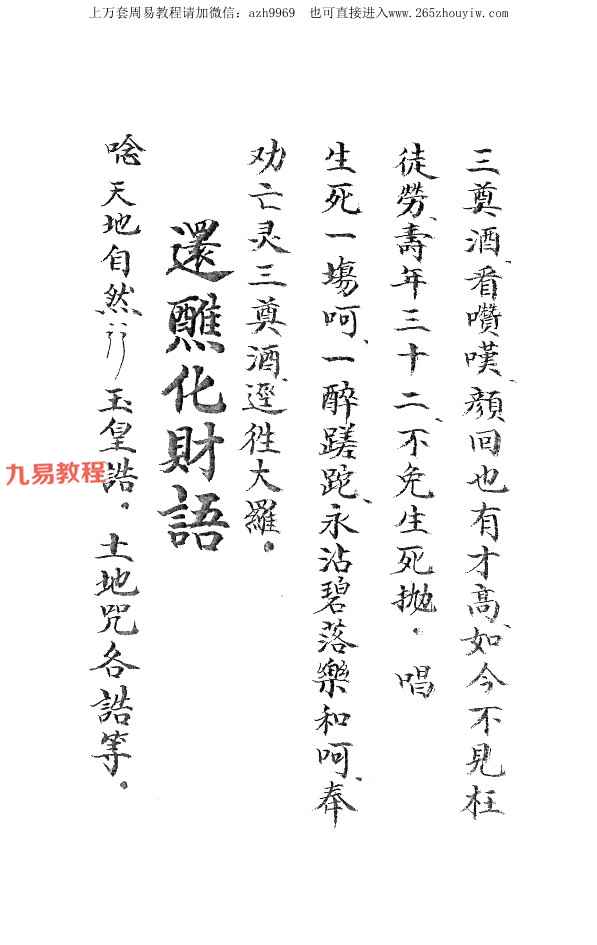 上万套周易教程请加微信：azh9969　也可直接进入www.265zhouyiw.com
三奠酒、看囋嘆、顏回也有才高、如今不見枉
徒勞、壽年三十二、不免生死拋。唱
生死一塲呵、一醉蹉跎、永沾碧落樂和呵、奉
劝亡灵三奠酒、逕徃大羅。
還醮化財語
唸天地自然 玉皇誥。土地咒各誥等。
九易教程